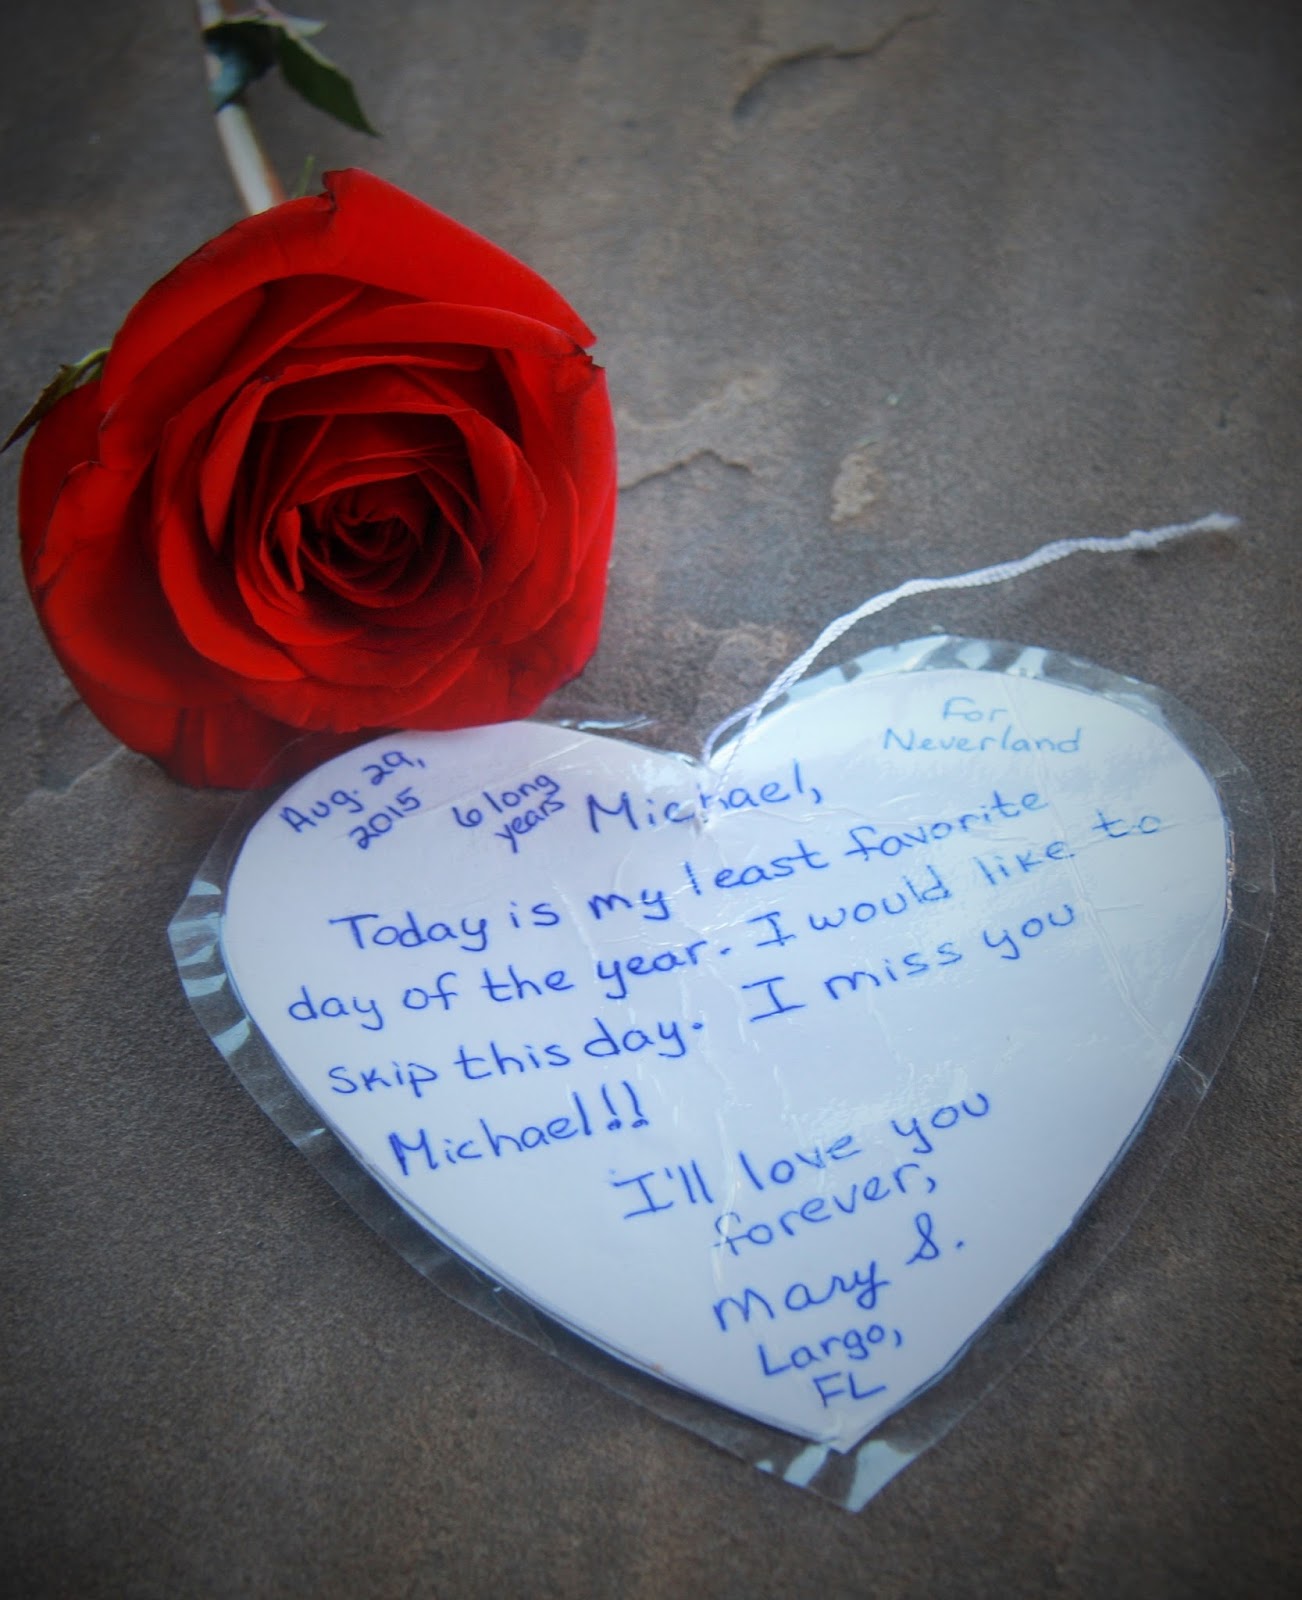 For
Neverland
Aug. 29,
2015
6 long
years
Michael,
Today is my least favorite
day of the year. I would like to
skip this day. I miss you
Michael!!
I'll love you
forever,
Mary S.
Largo,
FL